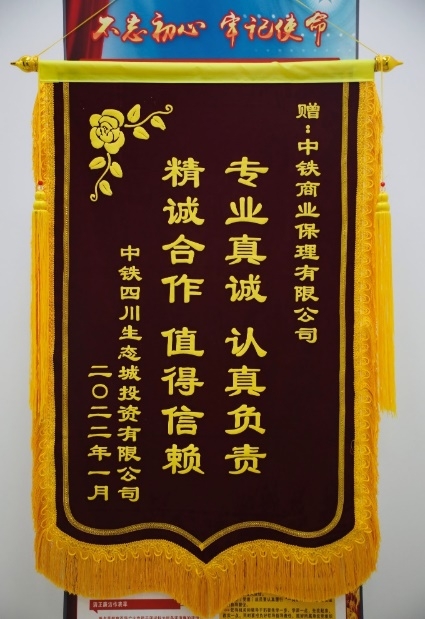 不忘初心 牢记使命
赠：中铁商业保理有限公司
专业真诚 认真负责
精诚合作 值得信赖
中铁四川生态城投资有限公司
二〇二二年一月